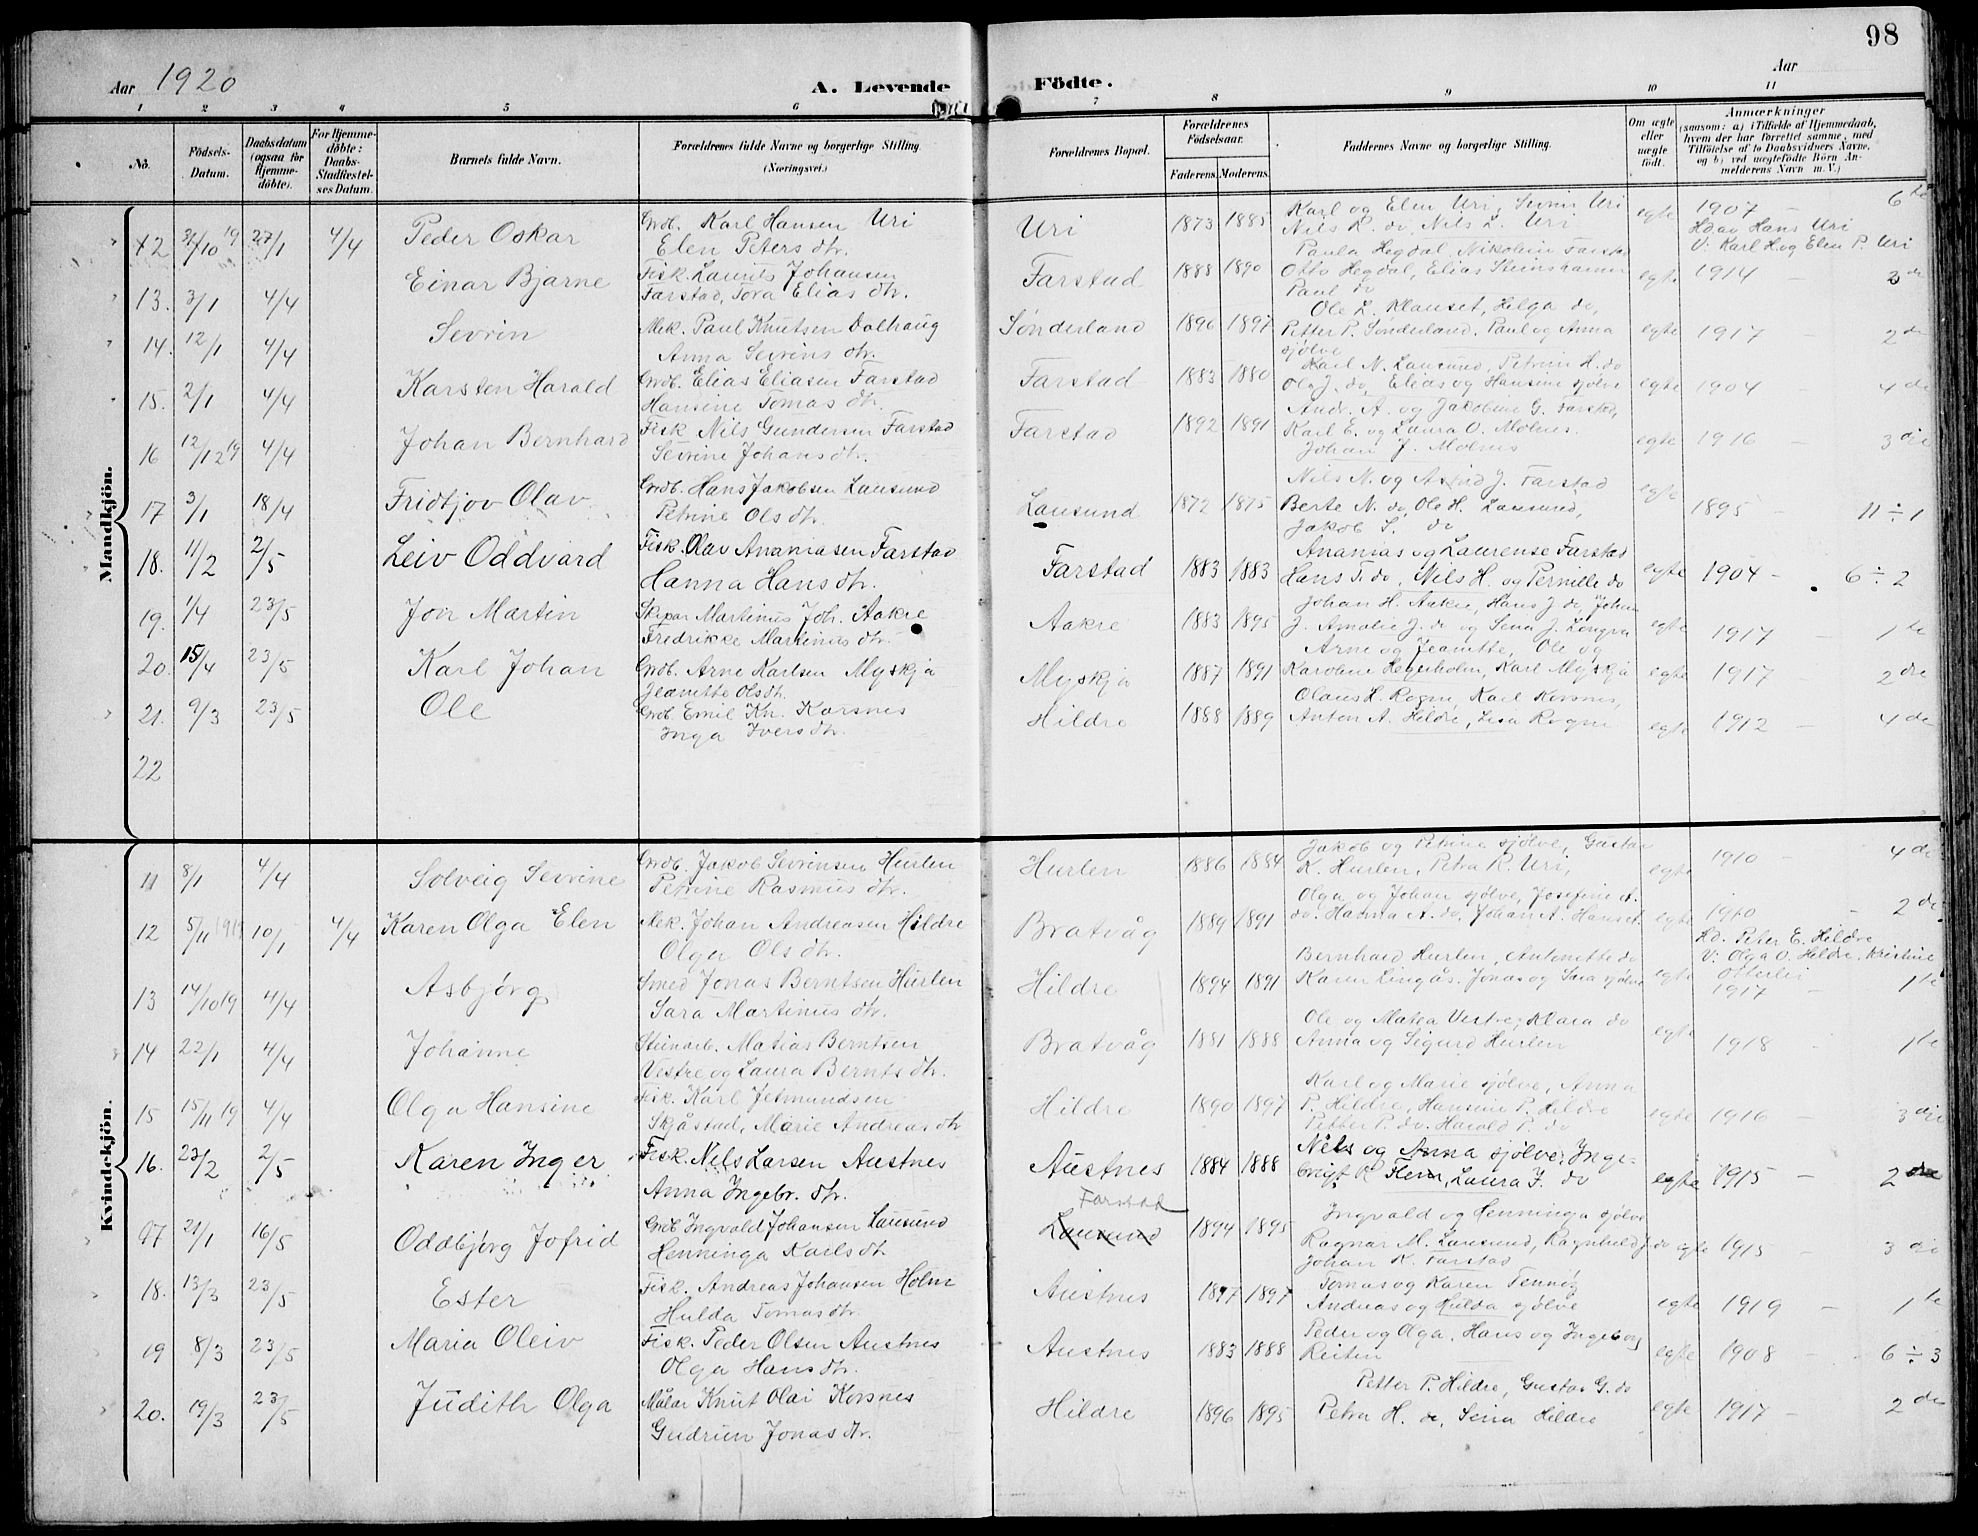 98
Aar 1920
A. Levende Födte.
Aar
1 2 3 4 5 6 7 8 9 10 11
No.
Födsels-Datum.
Daabsdatum (ogsaa for Hjemmedöbte).
For Hjemmedöbte: Daabs-Stadfæstelses Datum.
Barnets fulde Navn.
Forældrenes fulde Navne og borgerlige Stilling. (Næringsvei.)
Forældrenes Bopæl.
Forældrenes Födselsaar.
Faderens. Moderens.
Faddernes Navne og borgerlige Stilling.
Om ægte eller uægte födt.
Anmærkninger
(saasom: a) i Tilfælde af Hjemmedaab, hvem der har forrettet samme, med Tilföielse af to Daabsvidners Navne, og b) ved uægtefödte Börn Anmelderens Navn m. V.)
Mandkjön.
12 31/10 19 27/1 4/4 Peder Oskar Grdb. Karl Hansen Uri Uri 1873 1885 Karl og Elen Uri, Sevrin Uri egte 1907 – 6te
Elen Peters dtr. Nils K. do, Nils L. Uri Hdøv Hans Uri
V: Karl H. og Elen P. Uri
13. 3/1 4/4 Einar Bjarne Fisk. Laurits Johansen Farstad 1888 1890 Paula Hegdal, Nikoline Farstad egte 1914 –
Farstad, Tora Elias dtr. Otto Hegdal, Elias Steinshamn
Paul do
14. 12/1 4/4 Sevrin Mek. Paul Knutsen Dalhaug Sønderland 1896 1897 Ole L. Klauset, Helga do, egte 1917 – 2den
Anna Sevrins dtr. Petter P. Sønderland, Paul og Anna
sjølve
15. 2/1 4/4 Karsten Harald Grdb. Elias Eliasen Farstad Farstad 1883 1880 Karl N. Lausund, Petrine H. do egte 1904 – 4de
Hansine Tomas dtr. Ole J. do, Elias og Hansine sjølve
16 12/12 19 4/4 Johan Bernhard Fisk Nils Gundersen Farstad Farstad 1892 1891 Andr. A. og Jakobine G. Farstad, egte 1916 – 3die
Sevrine Johans dtr. Karl E. og Laura O. Molnes.
Johan J. Molnes
17 3/1 18/4 Fridtjov Olav Grdb. Hans Jakobsen Lausund Lausund 1872 1875 Nils N. og Astrid J. Farstad egte 1895 – 11 ÷ 1
Petrine Ols dtr. Berte N. do, Ole H. Lausund,
Jakob S. do
18. 11/2 2/5 Leiv Oddvard Fisk. Olav Ananiasen Farstad Farstad 1883 1883 Ananias og Laurense Farstad egte 1904 – 6 ÷ 2
Hanna Hans dtr. Hans T. do, Nils H. og Pernille do
19. 1/4 23/5 Jon Martin Skipar Martinus Joh. Aakre Aakre 1883 1895 Johan H. Aakre, Hans J. do, Johan egte 1917 – 1te
Fredrikke Martinus dtr. J. Amalie J. do og Sena J. Longva
20. 15/4 23/5 Karl Johan Grdb. Arne Karlsen Myskja Myskja 1887 1891 Arne og Jeanette, Ole og egte 1917 – 2dre
Jeanette Olsdtr. Karoline Hegerholm, Karl Myskja
21. 9/3 23/5 Ole Grdb. Emil Kn. Korsnes Hildre 1888 1889 Olaus H. Rogne, Karl Korsnes, egte 1912 – 4de
Inga Ivers dtr. Anton A. Hildre, Lisa Rogne
22
Kvindekjön.
11 8/1 4/4 Solveig Sevrine Grdb. Jakob Sevrinsen Hurlen Hurlen 1886 1884 Jakob og Petrine sjølve, Gustav egte 1910 – 4de
Petrine Rasmus dtr. K. Hurlen, Petra R. Uri,
12 5/11 1919 10/1 4/4 Karen Olga Elen Mek. Johan Andreasen Hildre Bratvåg 1889 1891 Olga og Johan sjølve, Josefine A. egte 1910 – 2de
Olga Ols dtr. do. Hanna A. do, Johan A. Hanset. Hd. Peter E. Hildre
V: Olga O. Hildre, Kristine
Otterlei
13 14/10 19 4/4 Asbjørg Smed Jonas Berntsen Hurlen Hildre 1894 1891 Bernhard Hurlen, Antonette do egte 1917 – 1te
Sara Martinus dtr. Karen Ringås. Jonas og Sara sjølve
14 22/1 4/4 Johanne Steinarb. Matias Berntsen Bratvåg 1881 1888 Ole og Matea Vestre, Klara do egte 1918 – 1te
Vestre og Laura Bernts dtr. Anna og Sigurd Hurlen
15 15/11 19 4/4 Olga Hansine Fisk. Karl Jetmundsen Hildre 1890 1897 Karl og Marie sjølve, Anna egte 1916 – 3die
Skjåstad, Marie Andreas dtr P. Hildre, Hansine P. Hildre
Petter P. do. Harald P. do
16. 23/2 2/5 Karen Inger Fisk. Nils Larsen Austnes Austnes 1884 1888 Nils og Anna sjølve, Inge- egte 1915 – 2dre
Anna Ingebr. dtr. brigt K Flem, Laura I. do
17 21/1 16/5 Oddbjørg Jofrid Grdb Ingvald Johansen Lausund Farstad Lausund 1894 1895 Ingvald og Henninga sjølve egte 1915 – 3die
Henninga Karls dtr. Ragnar M. Lausund, Ragnhild J. do
Johan K. Farstad
18. 13/3 23/5 Ester Fisk. Andreas Johansen Holm Austnes 1897 1897 Tomas og Karen Tennøy egte 1919 – 1te
Hulda Tomas dtr. Andreas og Hulda sjølve
19 8/3 23/5 Maria Oleiv Fisk. Peder Olsen Austnes Austnes 1883 1888 Peder og Olga, Hans og Ingeborg egte 1908 – 6 ÷ 3
Olga Hans dtr. Reiten
20. 19/3 23/5 Judith Olga Målar Knut Olai Korsnes Hildre 1896 1895 Petter P. Hildre, Gustav G. do egte 1917 – 2den
Gudrun Jonas dtr. Petra H. do, Seina Hildre